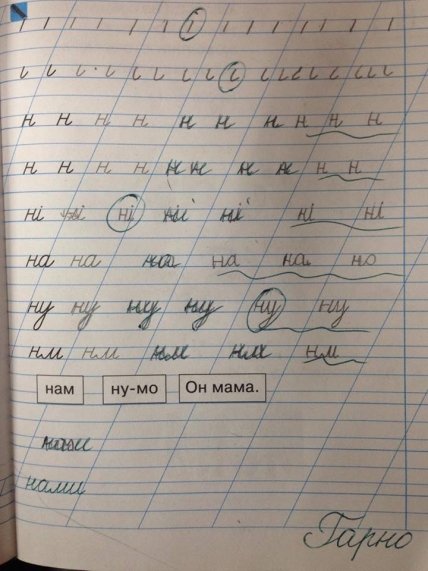 н н н н н н н н н н
н н н н н н н н н н
ні ні ні ні ні ні ні
на на на на на но
ну ну ну ну ну ну
нм нм нм нм нм
нам ну-мо Он мама.
нами
Гарно